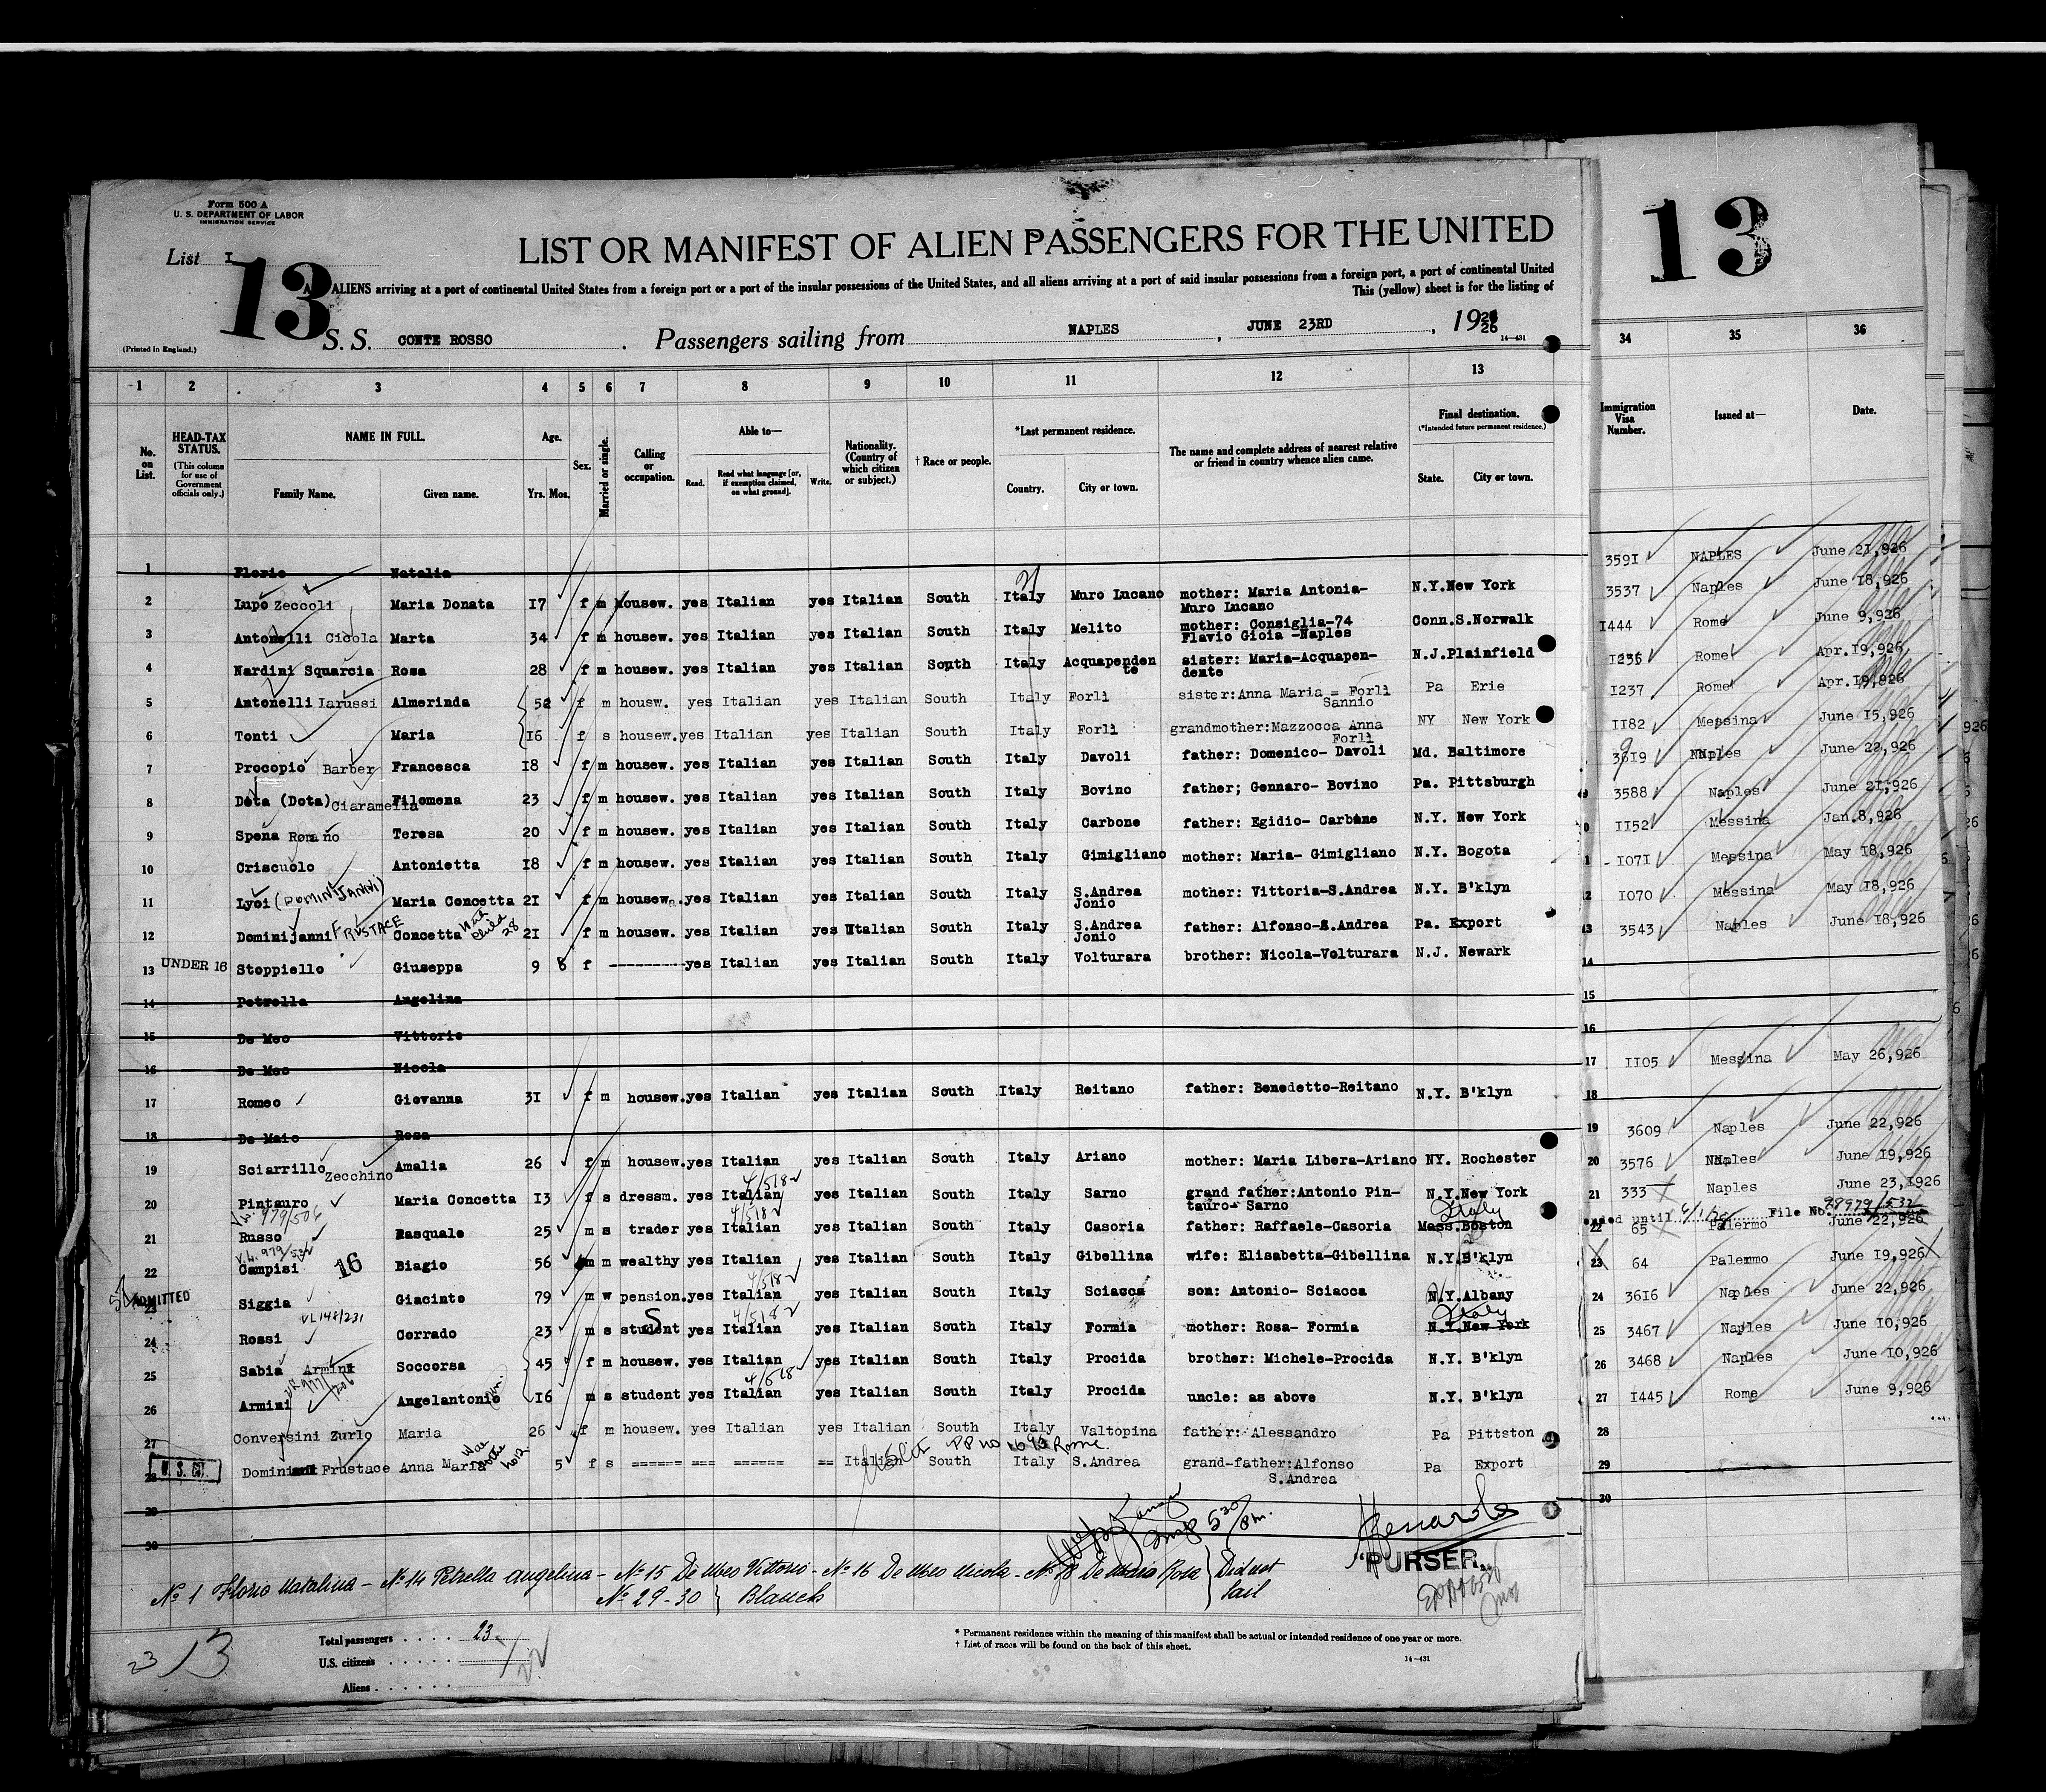 Form 500 A
U. S. DEPARTMENT OF LABOR
IMMIGRATION SERVICE
List I
13
13
LIST OR MANIFEST OF ALIEN PASSENGERS FOR THE UNITED
ALIENS arriving at a port of continental United States from a foreign port or a port of the insular possessions of the United States, and all aliens arriving at a port of said insular possessions from a foreign port, a port of continental United
This (yellow) sheet is for the listing of
(Printed in England.)
S. S. CONTE ROSSO . Passengers sailing from NAPLES , JUNE 23RD , 1926
14-431
1 2 3 4 5 6 7 8 9 10 11 12 13 34 35 36
No. on List.
HEAD-TAX STATUS.
(This column for use of Government officials only.)
NAME IN FULL.
Family Name. Given name.
Age.
Yrs. Mos.
Sex.
Married or single.
Calling or occupation.
Able to—
Read. Read what language [or, if exemption claimed, on what ground]. Write.
Nationality. (Country of which citizen or subject.)
† Race or people.
*Last permanent residence.
Country. City or town.
The name and complete address of nearest relative or friend in country whence alien came.
Final destination.
(*Intended future permanent residence.)
State. City or town.
Immigration Visa Number.
Issued at—
Date.
1 Florio Natalia
2 Lupo Zeccoli Maria Donata 17 f m housew. yes Italian yes Italian South Italy Muro Lucano mother: Maria Antonia- Muro Lucano N.Y. New York
3 Antonelli Cicola Marta 34 f m housew. yes Italian yes Italian South Italy Melito mother: Consiglia-74 Flavio Gioia -Naples Conn. S.Norwalk
4 Nardini Squarcia Rosa 28 f m housew. yes Italian yes Italian South Italy Acquapenden te sister: Maria-Acquapen- dente N.J. Plainfield
5 Antonelli Iarussi Almerinda 52 f m housw. yes Italian yes Italian South Italy Forlì sister:Anna Maria = Forlì Sannio Pa Erie
6 Tonti Maria 16 f s housew. yes Italian yes Italian South Italy Forlì grandmother:Mazzocca Anna Forlì NY New York
7 Procopio Barber Francesca 18 f m housew. yes Italian yes Italian South Italy Davoli father: Domenico- Davoli Md. Baltimore
8 Dota (Dota) Ciaramella Filomena 23 f m housew. yes Italian yes Italian South Italy Bovino father; Gennaro- Bovino Pa. Pittsburgh
9 Spena Romano Teresa 20 f m housew. yes Italian yes Italian South Italy Carbone father: Egidio- Carbone N.Y. New York
10 Criscuolo Antonietta 18 f m housew. yes Italian yes Italian South Italy Gimigliano mother: Maria- Gimigliano N.Y. Bogota
11 Lyoi (DOMINIJANNI) Maria Concetta 21 f m housew. yes Italian yes Italian South Italy S.Andrea Jonio mother: Vittoria-S.Andrea N.Y. B'klyn
12 Dominijanni FRUSTACE Concetta With child 28 21 f m housew. yes Italian yes Italian South Italy S.Andrea Jonio father: Alfonso-S.Andrea Pa. Export
13 UNDER 16 Stoppiello Giuseppa 9 8 f ---------- yes Italian yes Italian South Italy Volturara brother: Nicola-Volturara N.J. Newark
14 Petrella Angelina
15 De Meo Vittorio
16 De Meo Nicola
17 Romeo Giovanna 31 f m housew. yes Italian yes Italian South Italy Reitano father: Benedetto-Reitano N.Y. B'klyn
18 De Maio Rosa
19 Sciarrillo Zecchino Amalia 26 f m housew. yes Italian yes Italian South Italy Ariano mother: Maria Libera-Ariano NY. Rochester
20 Pintauro Maria Concetta 13 f s dressm. yes Italian yes Italian South Italy Sarno grand father:Antonio Pin- tauro- Sarno N.Y. New York
21 Russo Pasquale 25 m s trader yes Italian yes Italian South Italy Casoria father: Raffaele-Casoria Mass. Boston Italy
22 Campisi 16 Biagio 56 m m wealthy yes Italian yes Italian South Italy Gibellina wife: Elisabetta-Gibellina N.Y. B'klyn
23 ADMITTED Siggia Giacinto 79 m w pension. yes Italian yes Italian South Italy Sciacca son: Antonio- Sciacca N.Y. Albany
24 Rossi Corrado 23 m s student yes Italian yes Italian South Italy Formia mother: Rosa- Formia N.Y. New York Italy
25 Sabia Armini Soccorsa 45 f m housew. yes Italian yes Italian South Italy Procida brother: Michele-Procida N.Y. B'klyn
26 Armini Angelantonio 16 m s student yes Italian yes Italian South Italy Procida uncle: as above N.Y. B'klyn
27 Conversini Zurlo Maria 26 f m housew. yes Italian yes Italian South Italy Valtopina father: Alessandro Pa Pittston
28 U. S. CIT. Frustace Anna Maria 5 f s ====== === ====== == Italian South Italy S.Andrea grand-father:Alfonso S.Andrea Pa Export
29
30
3591 NAPLES June 21,926
3537 Naples June 18,926
1444 Rome June 9,926
1236 Rome Apr.19,926
1237 Rome Apr.19,926
1182 Messina June 15,926
3619 Naples June 22,926
3588 Naples June 21,926
1152 Messina Jan.8,926
1071 Messina May 18,926
12 1070 Messina May 18,926
13 3543 Naples June 18,926
14
15
16
17 1105 Messina May 26,926
18
19 3609 Naples June 22,926
20 3576 Naples June 19,926
21 333 Naples June 23,1926
File No. 98979/532
22 65 Palermo June 22,926
23 64 Palermo June 19,926
24 3616 Naples June 22,926
25 3467 Naples June 10,926
26 3468 Naples June 10,926
27 1445 Rome June 9,926
28
29
30
PURSER.
No 1 Florio Natalina – No 14 Petrella Angelina – No 15 De Meo Vittorio – No 16 De Meo Nicola – No 18 De Maio Rosa } Did not sail
No 29-30 } Blanch
23 13
Total passengers . . . . . 23
U.S. citizens . . . . . .
Aliens . . . . . .
* Permanent residence within the meaning of this manifest shall be actual or intended residence of one year or more.
† List of races will be found on the back of this sheet.
14-431